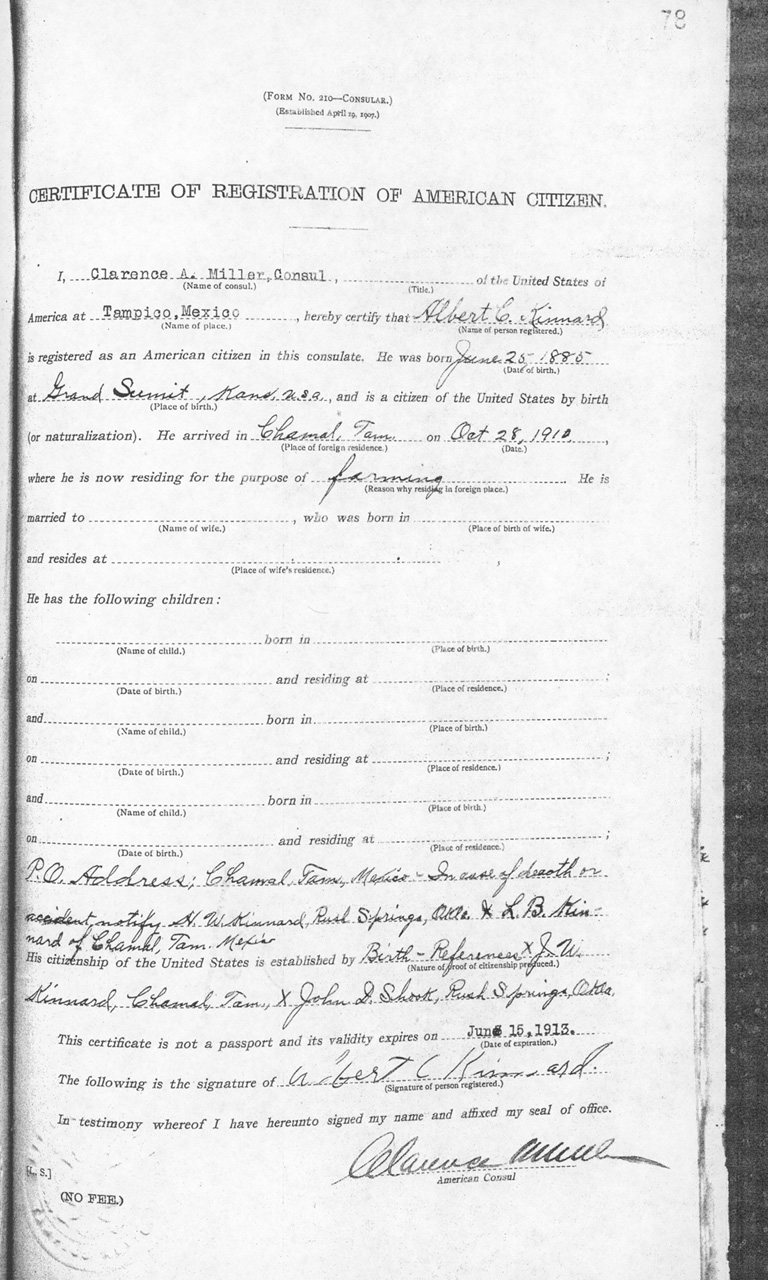 78
(FORM NO. 210—CONSULAR.)
(Established April 19, 1907.)
CERTIFICATE OF REGISTRATION OF AMERICAN CITIZEN.
I, Clarence A. Miller, Consul, of the United States of
(Name of consul.) (Title.)
America at Tampico, Mexico, hereby certify that Albert C. Kinnard
(Name of place.) (Name of person registered.)
is registered as an American citizen in this consulate. He was born June 25 1885
(Date of birth.)
at Grand Sumit, Kans, U.S.A., and is a citizen of the United States by birth
(Place of birth.)
(or naturalization). He arrived in Chamal, Tam. on Oct 28, 1910,
(Place of foreign residence.) (Date.)
where he is now residing for the purpose of farming. He is
(Reason why residing in foreign place.)
married to , who was born in
(Name of wife.) (Place of birth of wife.)
and resides at ,
(Place of wife's residence.)
He has the following children:
born in
(Name of child.) (Place of birth.)
on and residing at ;
(Date of birth.) (Place of residence.)
and born in
(Name of child.) (Place of birth.)
on and residing at ;
(Date of birth.) (Place of residence.)
and born in
(Name of child.) (Place of birth.)
on and residing at ;
(Date of birth.) (Place of residence.)
P.O. Address; Chamal, Tam, Mexico - In case of death or
accident notify H. W. Kinnard, Rush Springs, Okla. & L. B. Kin-
nard of Chamal, Tam. Mexico
His citizenship of the United States is established by Birth - References X J. W.
(Nature of proof of citizenship produced.)
Kinnard, Chamal, Tam, X John D. Shook, Rush Springs, Okla.
This certificate is not a passport and its validity expires on June 15, 1913.
(Date of expiration.)
The following is the signature of Albert C Kinnard.
(Signature of person registered.)
In testimony whereof I have hereunto signed my name and affixed my seal of office.
Clarence A Miller
American Consul
[L. S.]
(NO FEE.)